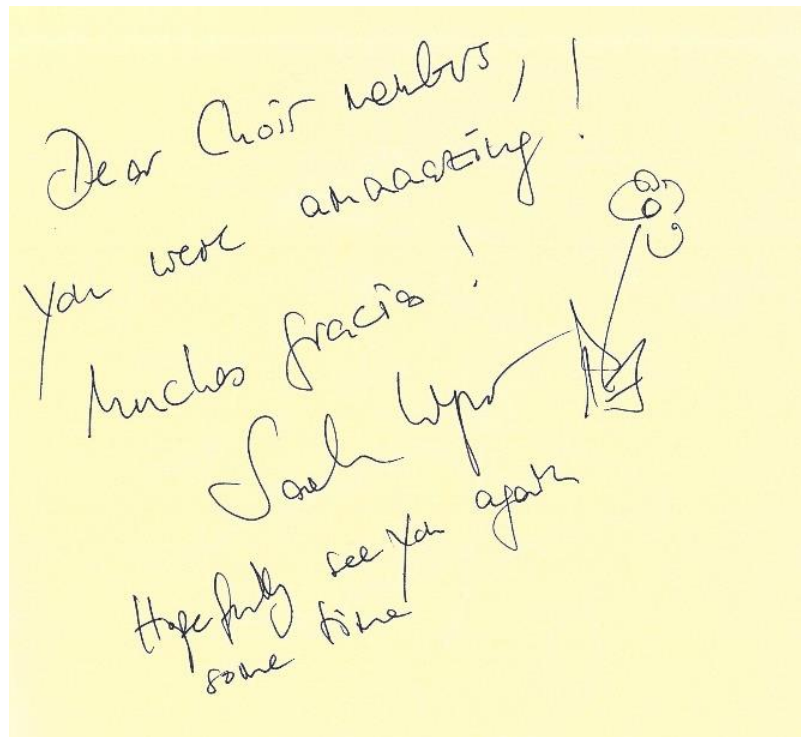 Dear Choir members,
you were amaaazing!
Muchas gracias!
Sarah
Hopefully see you again
some time